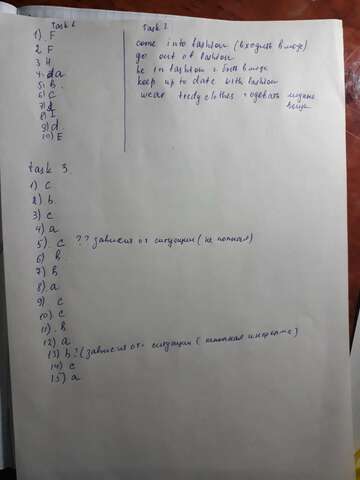 Task 1
1). F
2) F
3. H
4. da
5. B.
6) C
7)
8) I
9) d
10) E
Task 2
come into fashion (входить в моду)
go out of fashion
be in fashion - быть в моде
keep up to date with fashion
wear tredy clothes - одевать модные
вещи
Task 3
1) c
2) b
3) c
4) a
5). c ?? зависит от ситуации (не полная)
6) B
7) B
8) a
9) c
10) c
11). B
12) a
13) b? (зависит от ситуации (неполная информ.)
14) c
15) a